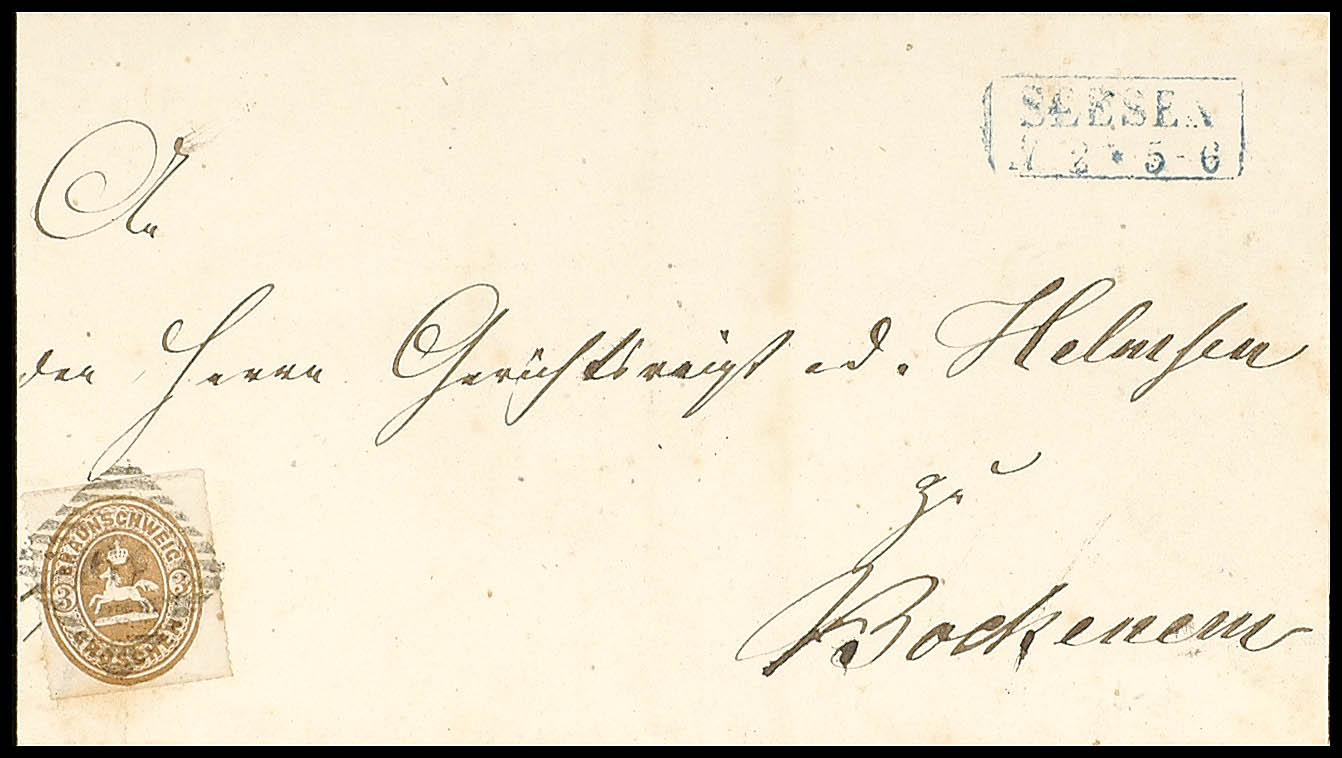 SEESEN
2 * 5-6
An
den Herrn Gerichtsvoigt a. d. Helmsen
zu
Bockenem
BRAUNSCHWEIG
3 3
GROSCHEN